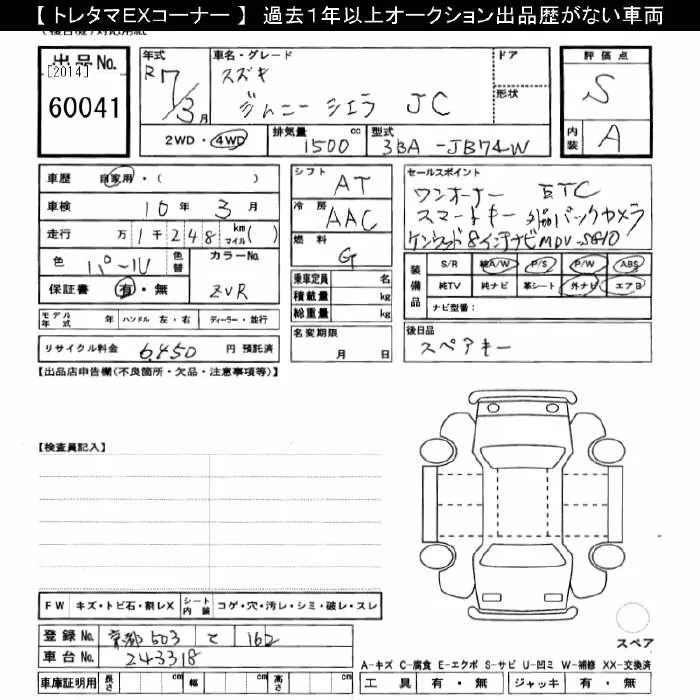 【 トレタマEXコーナー 】 過去1年以上オークション出品歴がない車両
出品No.
[2014]
60041
年式 R7/3月
車名・グレード
スズキ
ジムニーシエラ JC
ドア
形状
2WD・4WD
排気量 1500 cc
型式 3BA-JB74W
評価点
S
内装 A
車歴 自家用・( )
車検 10年 3月
走行 万 1千248 km マイル( )
色 パール 色替
カラーNo. ZVR
保証書 有・無
モデル年式 年 ハンドル 左・右 ディーラー・並行
リサイクル料金 6,450 円 預託済
シフト AT
冷房 AAC
燃料 G
乗車定員 名
積載量 kg
総重量 kg
名変期限
月 日
セールスポイント
ワンオーナー ETC
スマートキー 外品バックカメラ
ケンウッド8インチナビMDV-S810
装備品
S/R 純A/W P/S P/W ABS
純TV 純ナビ 革シート 外ナビ エアB
ナビ型番:
後日品
スペアキー
【出品店申告欄(不良箇所・欠品・注意事項等)】
【検査員記入】
FW キズ・トビ石・割レX シート内装 コゲ・穴・汚レ・シミ・破レ・スレ
登録No. 京都 503 て 162
車台No. 243318
車庫証明用 長さ cm 幅 cm 高さ cm
スペア
A-キズ C-腐食 E-エクボ S-サビ U-凹ミ W-補修 XX-交換済
工具 有・無 ジャッキ 有・無